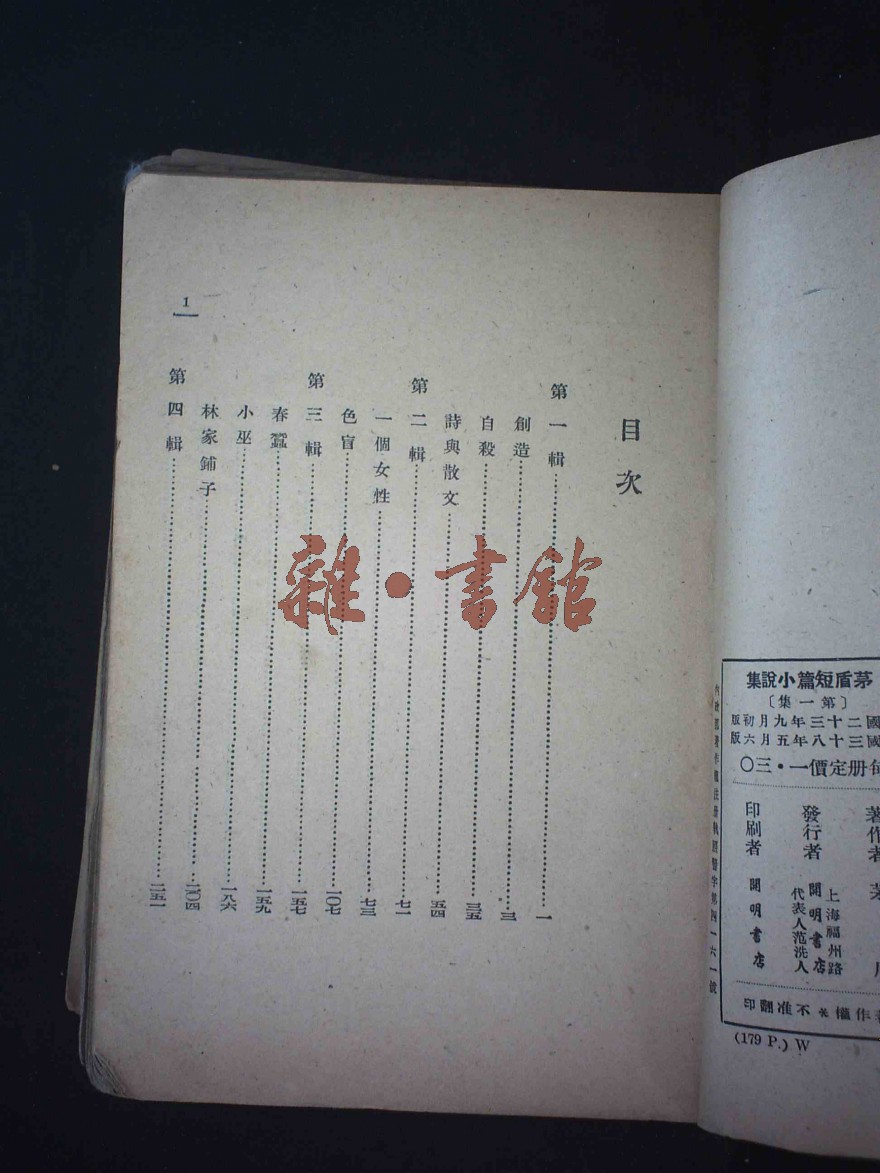 茅盾短篇小說集
〔第一集〕
國二十三年九月初版
國三十八年五月六版
每册定價一・三〇
著作者 茅
發行者 開明書店
上海福州路
代表人范洗人
印刷者 開明書店
著作權不准翻印
(179 P.) W
內政部著作權註册執照警字第四一六一號
目次
第一輯……一
創造……三
自殺……三五
詩與散文……五四
第二輯……七一
一個女性……七三
色盲……一〇七
第三輯……一五七
春蠶……一五九
小巫……一八六
林家鋪子……二〇四
第四輯……二五一
1
雜・書館